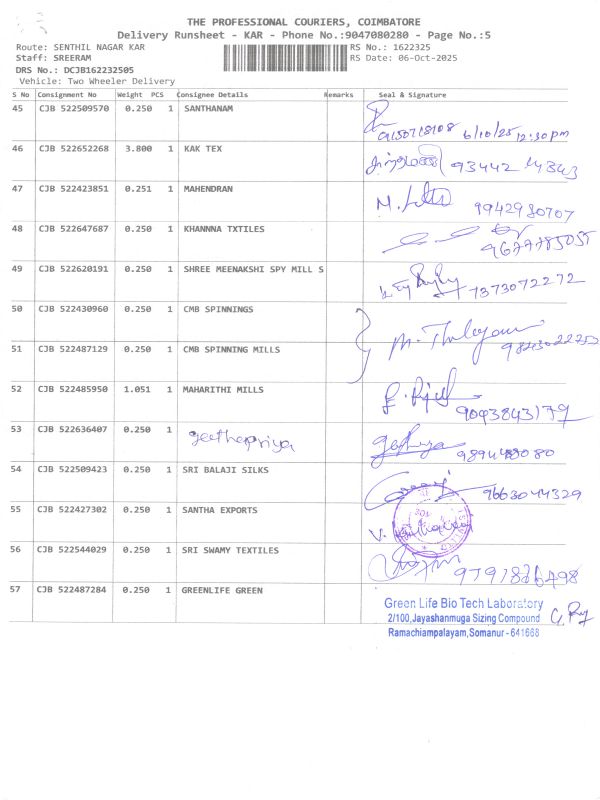 THE PROFESSIONAL COURIERS, COIMBATORE
Delivery Runsheet - KAR - Phone No.:9047080280 - Page No.:5
Route: SENTHIL NAGAR KAR RS No.: 1622325
Staff: SREERAM RS Date: 06-Oct-2025
DRS No.: DCJB162232505
Vehicle: Two Wheeler Delivery
S No Consignment No Weight PCS Consignee Details Remarks Seal & Signature
45 CJB 522509570 0.250 1 SANTHANAM
9150718108 6/10/25 12:30pm
46 CJB 522652268 3.800 1 KAK TEX
93442 14343
47 CJB 522423851 0.251 1 MAHENDRAN
9942980707
48 CJB 522647687 0.250 1 KHANNNA TXTILES
9677785055
49 CJB 522620191 0.250 1 SHREE MEENAKSHI SPY MILL S
7373072272
50 CJB 522430960 0.250 1 CMB SPINNINGS
51 CJB 522487129 0.250 1 CMB SPINNING MILLS
52 CJB 522485950 1.051 1 MAHARITHI MILLS
9093843179
53 CJB 522636407 0.250 1 geethapriya
9894489080
54 CJB 522509423 0.250 1 SRI BALAJI SILKS
9663044329
55 CJB 522427302 0.250 1 SANTHA EXPORTS
56 CJB 522544029 0.250 1 SRI SWAMY TEXTILES
9791826498
57 CJB 522487284 0.250 1 GREENLIFE GREEN
Green Life Bio Tech Laboratory
2/100,Jayashanmuga Sizing Compound
Ramachiampalayam,Somanur - 641668